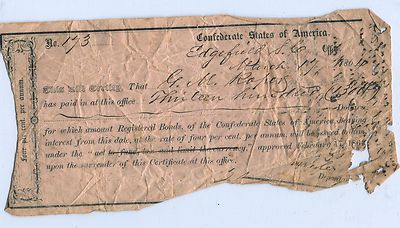 Confederate States of America.
No. 173
Edgefield S.C.
March 17, 186
This will Certify, That G. M. Roper
has paid in at this office Thirteen hundred
Dollars,
for which amount Registered Bonds, of the Confederate States of America, bearing
interest from this date, at the rate of four per cent. per annum, will be issued to him
under the "act to fund, tax and limit the currency," approved February 17, 186
upon the surrender of this Certificate at this office.
Deposit
four per cent. per annum.